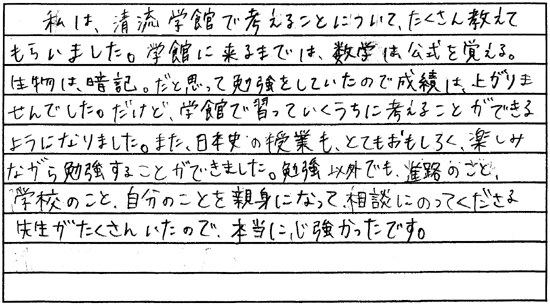 私は、清流学館で考えることについて、たくさん教えて
もらいました。学館に来るまでは、数学は公式を覚える。
生物は、暗記。だと思って勉強をしていたので成績は、上がりま
せんでした。だけど、学館で習っていくうちに考えることができる
ようになりました。また、日本史の授業も、とてもおもしろく、楽しみ
ながら勉強することができました。勉強以外でも、進路のこと、
学校のこと、自分のことを親身になって、相談にのってくださる
先生がたくさんいたので、本当に心強かったです。